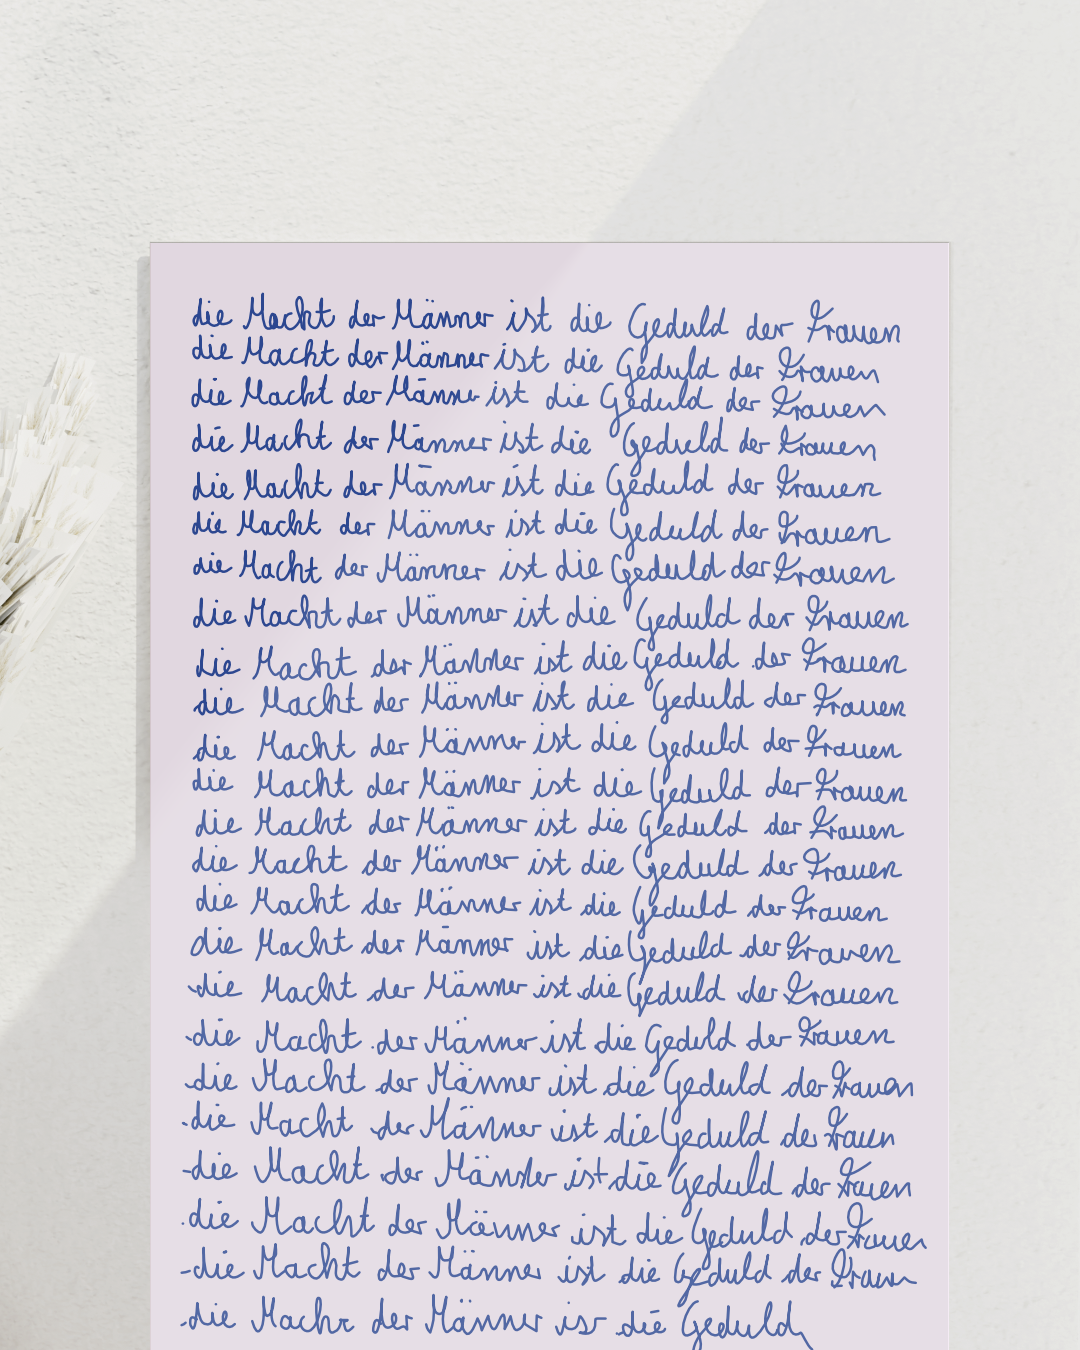 die Macht der Männer ist die Geduld der Frauen
die Macht der Männer ist die Geduld der Frauen
die Macht der Männer ist die Geduld der Frauen
die Macht der Männer ist die Geduld der Frauen
die Macht der Männer ist die Geduld der Frauen
die Macht der Männer ist die Geduld der Frauen
die Macht der Männer ist die Geduld der Frauen
die Macht der Männer ist die Geduld der Frauen
die Macht der Männer ist die Geduld der Frauen
die Macht der Männer ist die Geduld der Frauen
die Macht der Männer ist die Geduld der Frauen
die Macht der Männer ist die Geduld der Frauen
die Macht der Männer ist die Geduld der Frauen
die Macht der Männer ist die Geduld der Frauen
die Macht der Männer ist die Geduld der Frauen
die Macht der Männer ist die Geduld der Frauen
die Macht der Männer ist die Geduld der Frauen
die Macht der Männer ist die Geduld der Frauen
die Macht der Männer ist die Geduld der Frauen
die Macht der Männer ist die Geduld der Frauen
die Macht der Männer ist die Geduld der Frauen
die Macht der Männer ist die Geduld der Frauen
die Macht der Männer ist die Geduld der Frauen
die Macht der Männer ist die Geduld